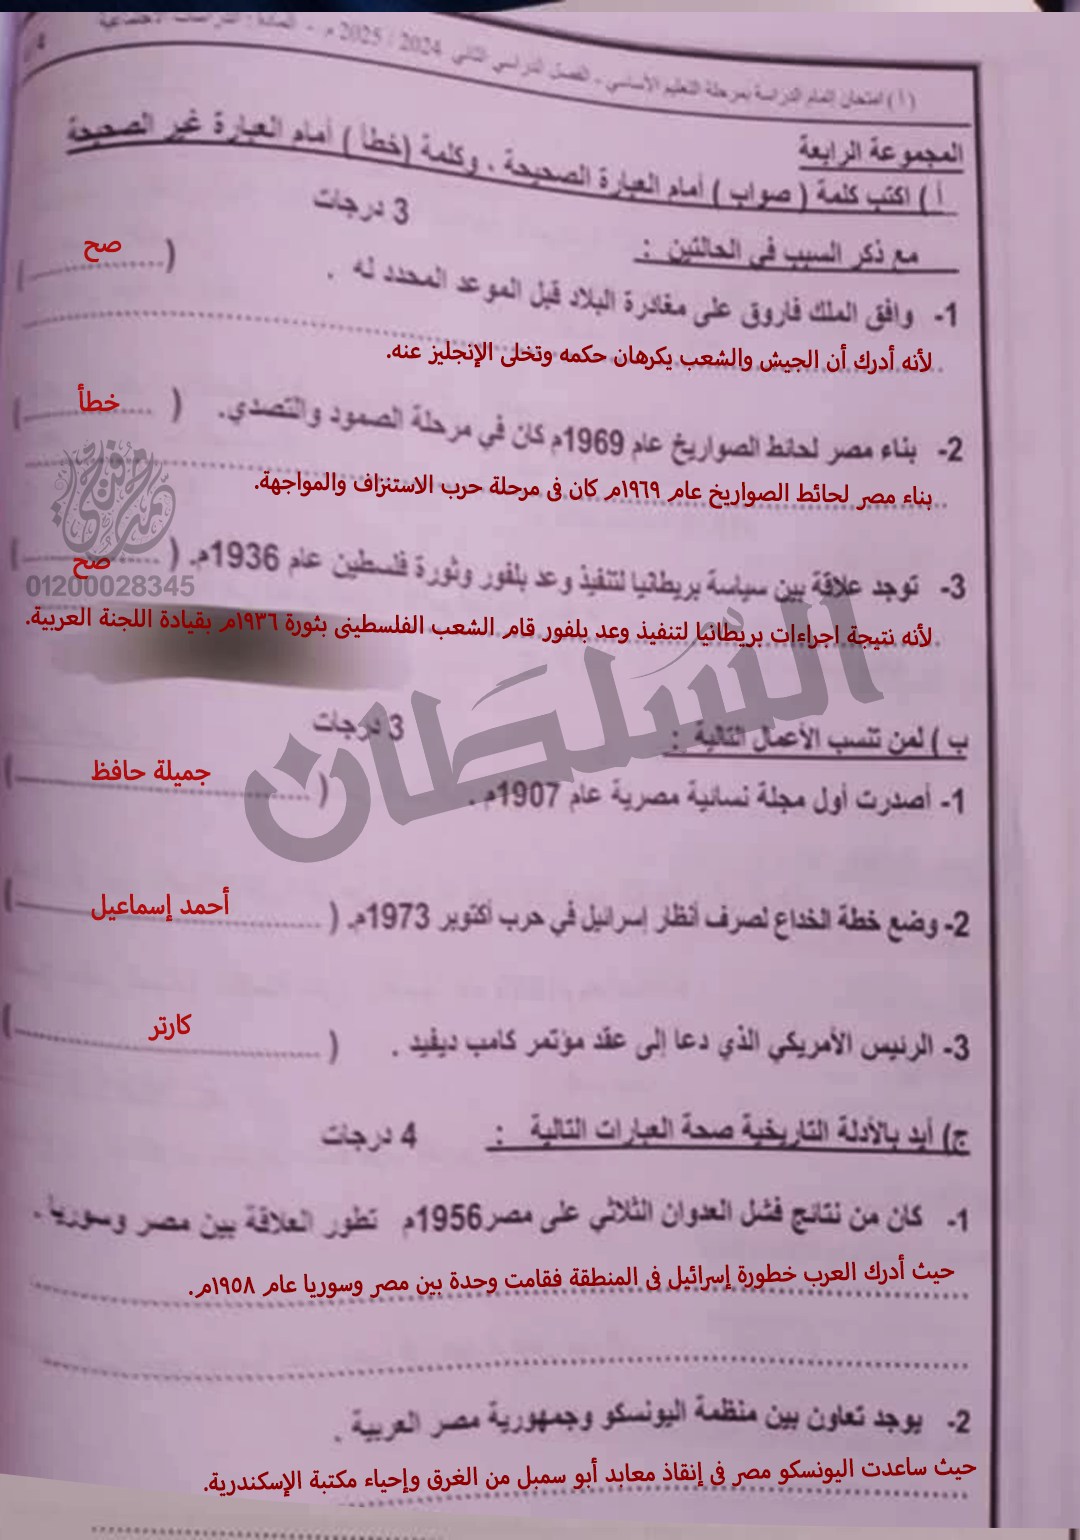 ( أ ) امتحان إتمام الدراسة بمرحلة التعليم الأساسي - الفصل الدراسي الثاني 2024 / 2025 م - المادة : الدراسات الاجتماعية
المجموعة الرابعة
أ ) اكتب كلمة ( صواب ) أمام العبارة الصحيحة . وكلمة (خطأ ) أمام العبارة غير الصحيحة
مع ذكر السبب في الحالتين : 3 درجات
1- وافق الملك فاروق على مغادرة البلاد قبل الموعد المحدد له . ( صح )
لأنه أدرك أن الجيش والشعب يكرهان حكمه وتخلى الإنجليز عنه.
2- بناء مصر لحائط الصواريخ عام 1969م كان في مرحلة الصمود والتصدي. ( خطأ )
بناء مصر لحائط الصواريخ عام ١٩٦٩م كان فى مرحلة حرب الاستنزاف والمواجهة.
3- توجد علاقة بين سياسة بريطانيا لتنفيذ وعد بلفور وثورة فلسطين عام 1936م. ( صح )
01200028345
لأنه نتيجة اجراءات بريطانيا لتنفيذ وعد بلفور قام الشعب الفلسطينى بثورة ١٩٣٦م بقيادة اللجنة العربية.
السلطان
ب ) لمن تنسب الأعمال التالية : 3 درجات
1- أصدرت أول مجلة نسائية مصرية عام 1907م . ( جميلة حافظ )
2- وضع خطة الخداع لصرف أنظار إسرائيل في حرب أكتوبر 1973م. ( أحمد إسماعيل )
3- الرئيس الأمريكي الذي دعا إلى عقد مؤتمر كامب ديفيد . ( كارتر )
ج) أيد بالأدلة التاريخية صحة العبارات التالية : 4 درجات
1- كان من نتائج فشل العدوان الثلاثي على مصر1956م تطور العلاقة بين مصر وسوريا .
حيث أدرك العرب خطورة إسرائيل فى المنطقة فقامت وحدة بين مصر وسوريا عام ١٩٥٨م.
2- يوجد تعاون بين منظمة اليونسكو وجمهورية مصر العربية .
حيث ساعدت اليونسكو مصر فى إنقاذ معابد أبو سمبل من الغرق وإحياء مكتبة الإسكندرية.